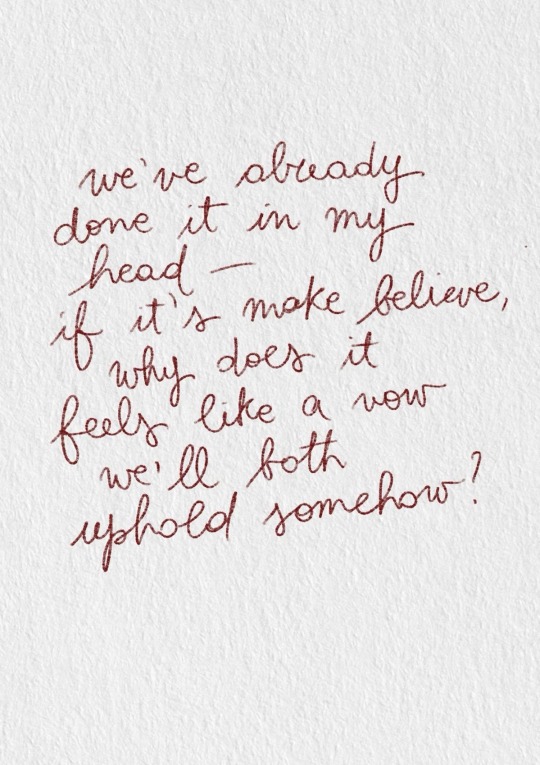 we've already
done it in my
head —
if it's make believe,
why does it
feels like a vow
we'll both
uphold somehow?